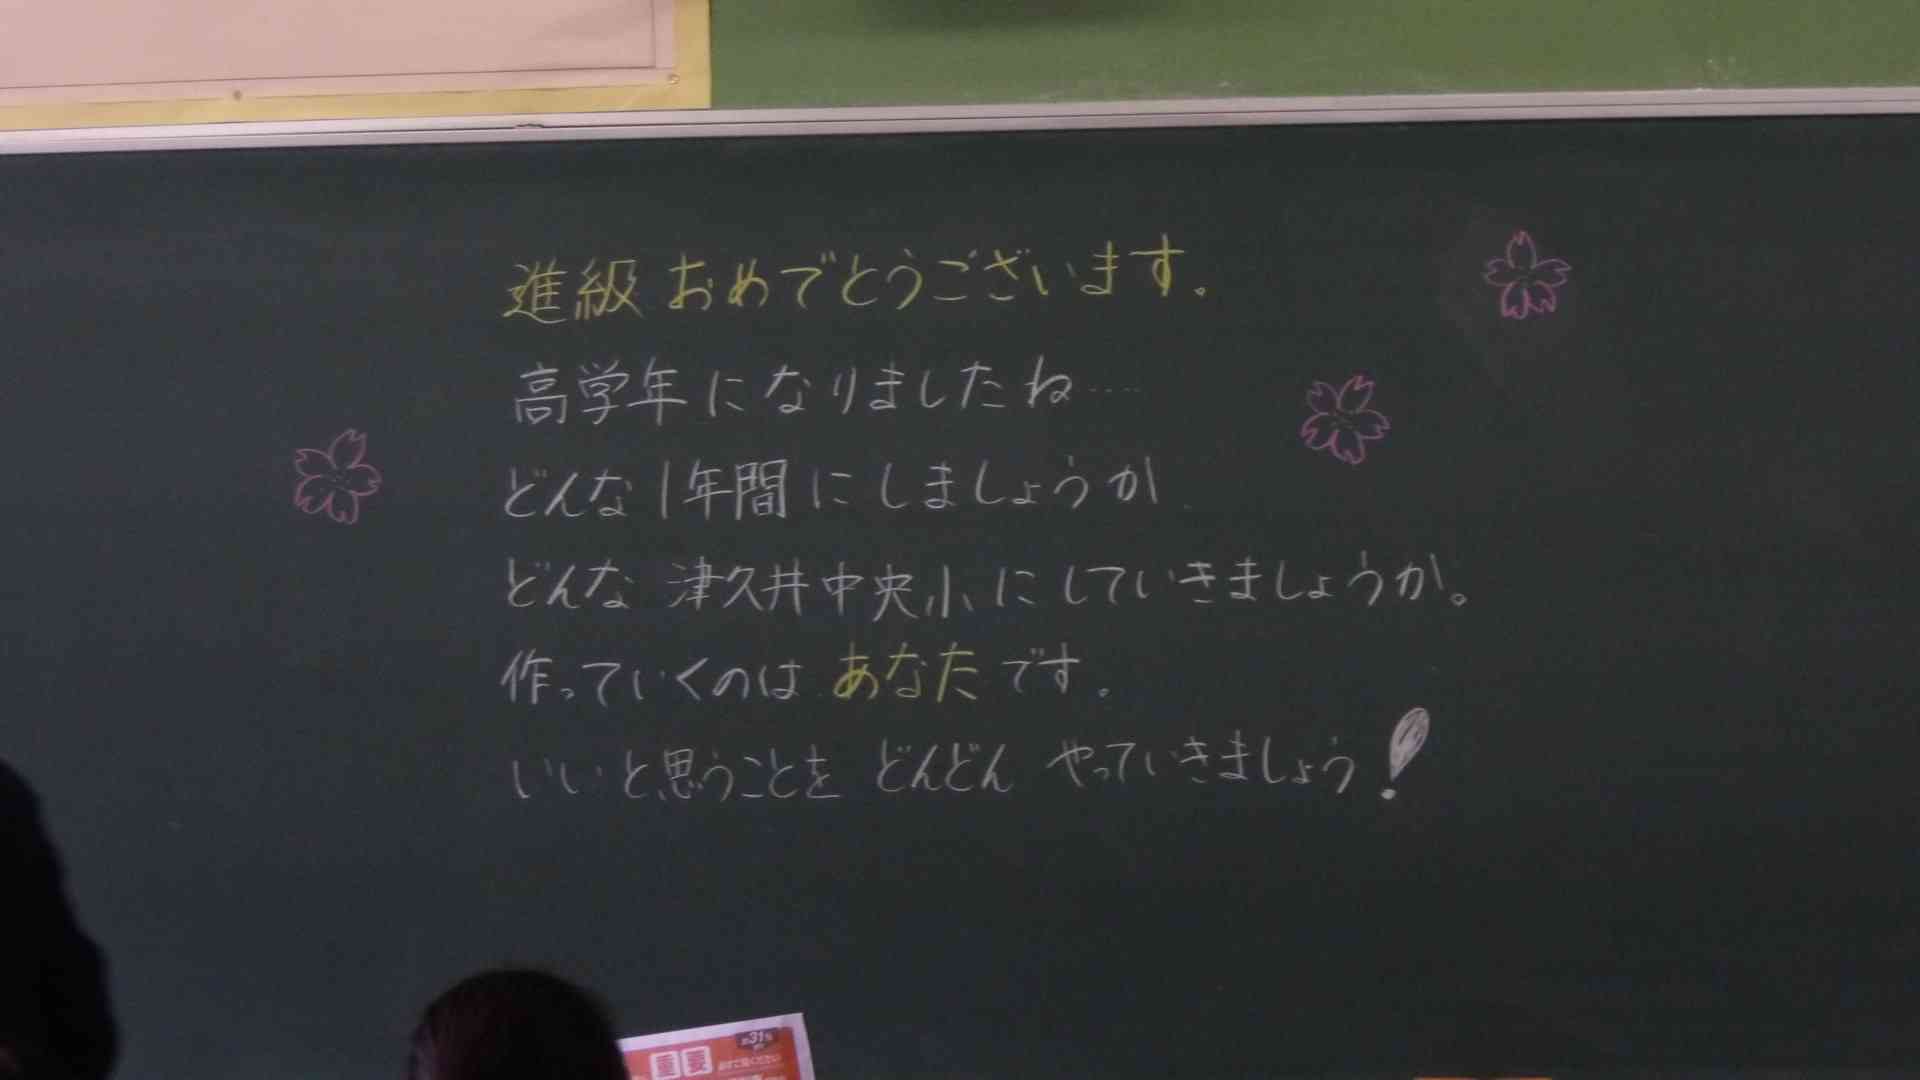 進級おめでとうございます。
高学年になりましたね……
どんな1年間にしましょうか
どんな 津久井中央小にしていきましょうか。
作っていくのは あなたです。
いいと思うことを どんどん やっていきましょう!
重要